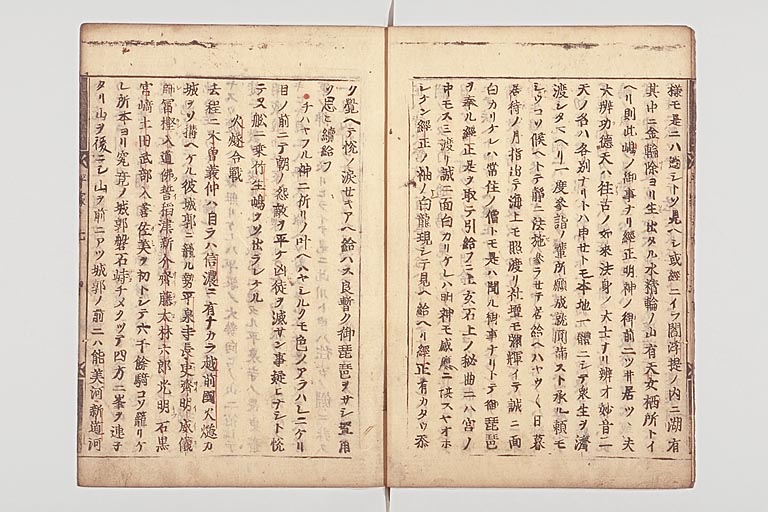 様モ是ニハ過シトソ見ヘシ或經ニイフ閻浮提ノ内ニ湖有
其中ニ金輪際ヨリ生出タル水精輪ノ山有天女栖所トイ
ヘリ則此嶋ノ御事ナリ經正明神ノ御前ニツ井居ツヽ夫
大辨功徳天ハ往古ノ如來法身ノ大士ナリ辨才妙音二
天ノ名ハ各別ナリトハ申セトモ本地一體ニシテ衆生ヲ濟
渡シタマヘリ一度參詣ノ輩所願成就圓滿スト承ル頼モ
シウコソ候ヘトテ靜ニ法施參ラセテ居給ヘハヤウヽヽ日暮
居待ノ月指出テ海上モ照渡リ社壇モ彌輝イテ誠ニ面
白カリケレハ常住ノ僧トモ是ハ聞ル御事ナリトテ御琵琶
ヲ奉ル經正是ヲ取テ引給フニ上玄石上ノ秘曲ニハ宮ノ
中モスミ渡リ誠ニ面白カリケレハ明神モ感應ニ
レケン經正ノ袖ノ上ニ白龍現シテ見ヘ給ヘリ經正有カタウ忝
ソ覺ヘテ悦ノ涙セキアヘ給ハス良暫ク御琵琶ヲサシ置用
ツ思ヒ續給フ
チハヤフル神ニ祈リノ叶ヘハヤシルクモ色ノアラハレニケリ
目ノ前ニテ朝ノ怨敵ヲ平ケ凶徒ヲ滅サン事疑ヒナシト悦
テ又舩ニ乘竹生嶋ヲソ出ラレケル
火燧合戰
去程ニ木曽義仲ハ自ラハ信濃ニ有ナカラ越前國火燧カ
城ヲソ搆ヘケル彼城郭ニ籠ル勢平泉寺長吏齊明威儀
師冨樫入道佛誓稲津新介齊藤太林六郎光明石黒
宮﨑土田武部入善佐美ヲ初トシテ六千餘騎コソ籠リケ
レ所本ヨリ究竟ノ城郭磐石峙チメクツテ四方ニ峯ヲ連子
タリ山ヲ後ニシ山ヲ前ニアツ城郭ノ前ニハ能美河新道河